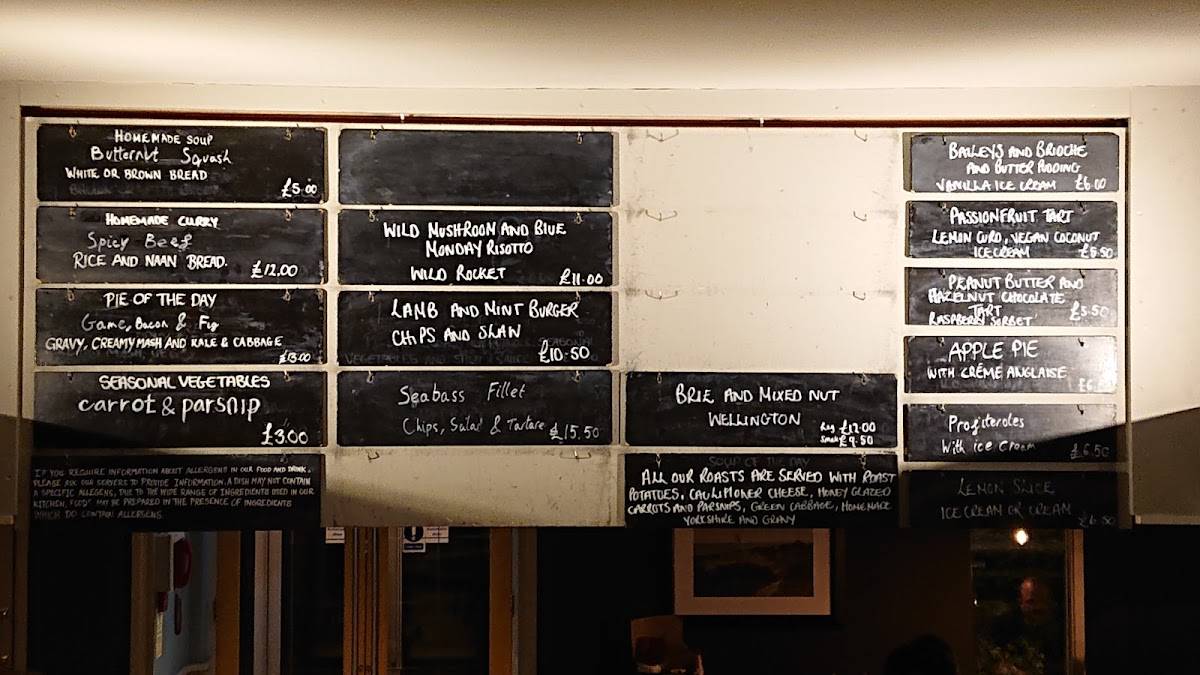 HOMEMADE SOUP
Butternut Squash
WHITE OR BROWN BREAD
£5.00
HOMEMADE CURRY
Spicy Beef
RICE AND NAAN BREAD.
£12.00
PIE OF THE DAY
Game, Bacon & Fig
GRAVY, CREAMY MASH AND KALE & CABBAGE
£13.00
SEASONAL VEGETABLES
carrot & parsnip
£3.00
IF YOU REQUIRE INFORMATION ABOUT ALLERGENS IN OUR FOOD AND DRINK,
PLEASE ASK OUR SERVERS TO PROVIDE INFORMATION. A DISH MAY NOT CONTAIN
A SPECIFIC ALLERGENS, DUE TO THE WIDE RANGE OF INGREDIENTS USED IN OUR
KITCHEN, FOOD MAY BE PREPARED IN THE PRESENCE OF INGREDIENTS
WHICH DO CONTAIN ALLERGENS.
WILD MUSHROOM AND BLUE
MONDAY RISOTTO
WILD ROCKET
£11.00
LAMB AND MINT BURGER
CHIPS AND SLAW
£10.50
Seabass Fillet
Chips, Salad & Tartare £15.50
BRIE AND MIXED NUT
WELLINGTON
Reg £12.00
Small £9.50
SOUP OF THE DAY
ALL OUR ROASTS ARE SERVED WITH ROAST
POTATOES, CAULIFLOWER CHEESE, HONEY GLAZED
CARROTS AND PARSNIPS, GREEN CABBAGE, HOMEMADE
YORKSHIRE AND GRAVY
BAILEYS AND BRIOCHE
AND BUTTER PUDDING
VANILLA ICE CREAM £6.00
PASSIONFRUIT TART
LEMON CURD, VEGAN COCONUT
ICE CREAM £5.50
PEANUT BUTTER AND
HAZELNUT CHOCOLATE
TART £5.50
RASPBERRY SORBET
APPLE PIE
WITH CRÈME ANGLAISE
Profiteroles
With ice Cream £6.50
LEMON SLICE
ICE CREAM OR CREAM
£6.50